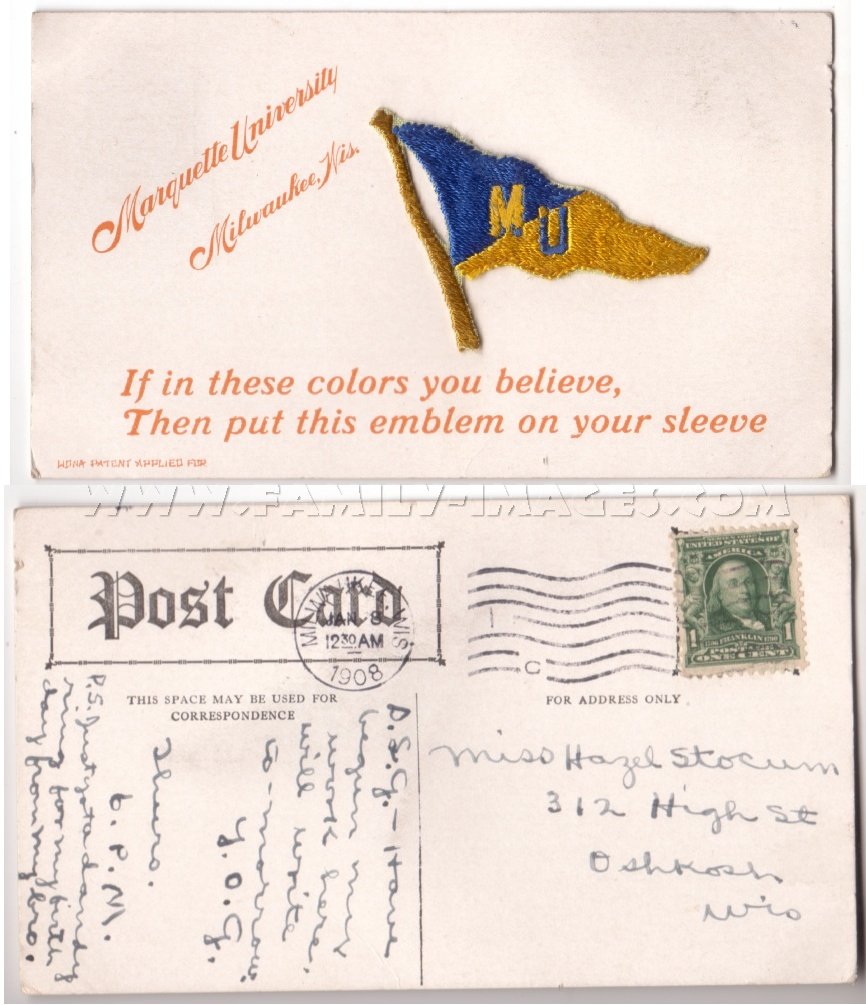 Marquette University
Milwaukee, Wis.
M U
If in these colors you believe,
Then put this emblem on your sleeve
WONA PATENT APPLIED FOR
WWW.FAMILY-IMAGES.COM
Post Card
MILWAUKEE, WIS
JAN 8
12 30 AM
1908
C
UNITED STATES OF
AMERICA
FRANKLIN
1
POSTAGE
ONE CENT
THIS SPACE MAY BE USED FOR
CORRESPONDENCE
FOR ADDRESS ONLY
D.S.G. – Have
begun my
work here.
will write
to-morrow.
Y.O.G.
Thurs.
6. P.M.
P.S. Just got a dandy
ring for my birth
day from my bro.
Miss Hazel Stocum
312 High St
Oshkosh
Wis